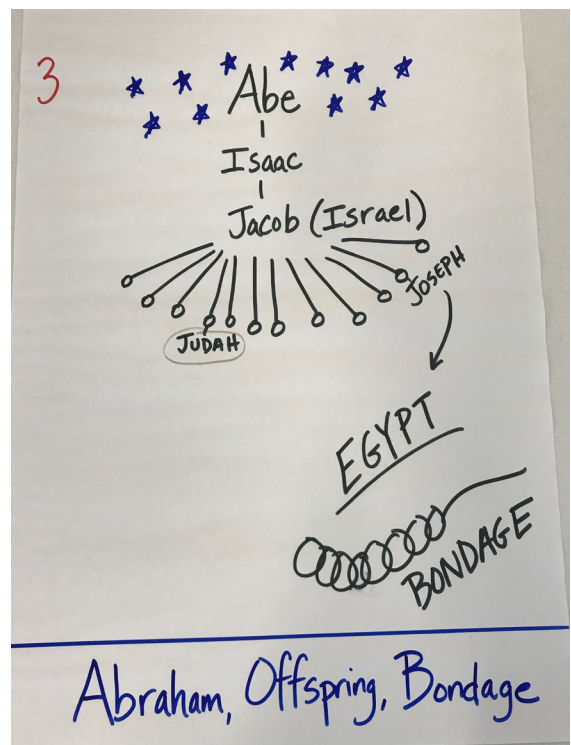 3
Abe
Isaac
Jacob (Israel)
JOSEPH
JUDAH
EGYPT
BONDAGE
Abraham, Offspring, Bondage